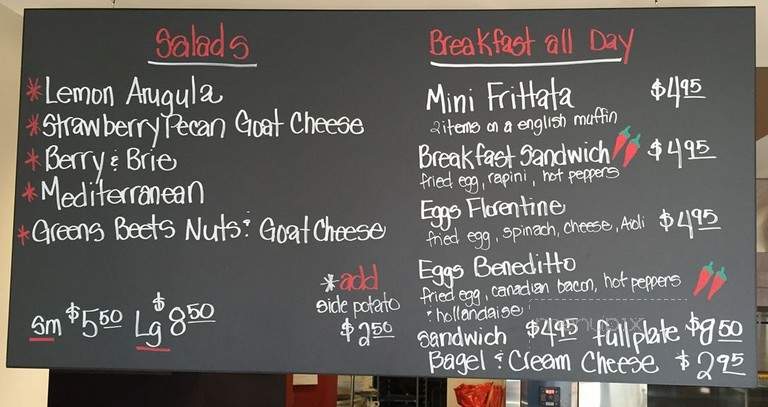 Salads
* Lemon Arugula
* Strawberry Pecan Goat Cheese
* Berry & Brie
* Mediterranean
* Greens Beets Nuts & Goat Cheese
* add
side potato
$2.50
Sm $5.50 Lg $8.50
Breakfast all Day
Mini Frittata $4.95
2 items on a english muffin
Breakfast Sandwich $4.95
fried egg, rapini, hot peppers
Eggs Florentine
fried egg, spinach, cheese, Aioli $4.95
Eggs Beneditto
fried egg, canadian bacon, hot peppers
& hollandaise
sandwich $4.95 full plate $8.50
Bagel & Cream Cheese $2.95
menupix